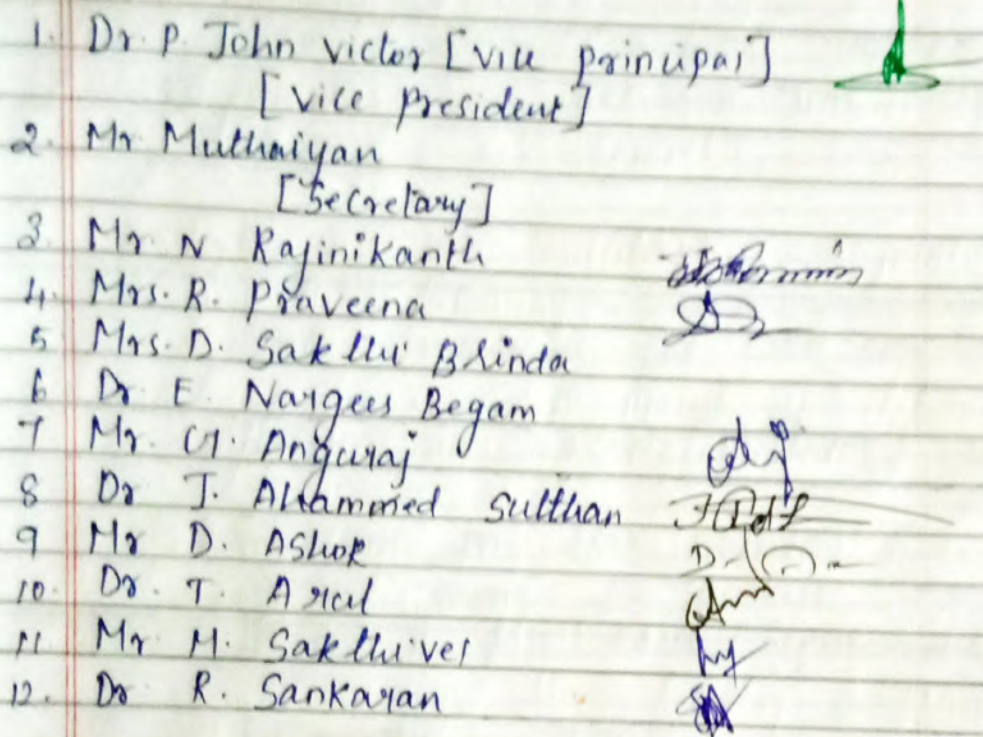 1. Dr. P. John victor [Vice principal]
[Vice president]
2. Mr Muthaiyan
[Secretary]
3. Mr. N Rajinikanth
4. Mrs. R. Praveena
5 Mrs. D. Sakthi Brinda
6 Dr E. Nargees Begam
7 Mr. G. Anguraj
8 Dr J. Ahammed Sulthan
9 Mr D. Ashok
10. Dr. T. Arul
11 Mr M. Sakthivel
12. Dr R. Sankaran